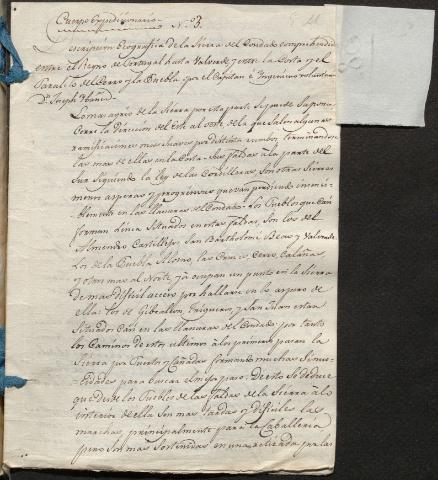 Cuerpo Expedicionario
N.º 3.
Descripcion Geografica de la Sierra del Condado comprendida
entre el Reyno de Portugal hasta Valverde y entre la Costa y el
Paralelo del Cerro y la Puebla por el Capitan è Ingeniero voluntario
Dn. Joseph Ybañez
Lo mas agrio de la Sierra por esta parte se puede supone
corre la direccion del Este al oeste de la que salen algunas
ramificaciones mas suaves por distintos rumbos terminando
las mas de ellas en la Costa. Sus faldas à la parte del
Sur siguiendo la ley de las Cordilleras, son otras Sierras
menos asperas y progresivas que van perdiendo
en las llanuras del Condado. Los Pueblos que
forman linea situados en estas faldas, son los del
Almendro, Castillejos, San Bartholomé, Beas y Valverde
Los de la Puebla, Alosno, las Cruces, Cerro, Calañas,
y otros mas al Norte ya ocupan un punto en la Sierra
de mas dificil acceso por hallarse en lo aspero de
ella: los de Gibraleon, Trigueros y San Juan estan
situados casi en las llanuras del Condado. por tanto
los Caminos de estos ultimos à los primeros pasan la
Sierra por Puertos y Cañadas formando muchas sinuo-
sidades para buscar el mejor paso. De esto se deduce
que desde los Pueblos de las faldas de la Sierra à lo
interior de ella son mas tardas y dificiles las
marchas, principalmente para la Caballeria
pero son mas sostenidas en una retirada por las